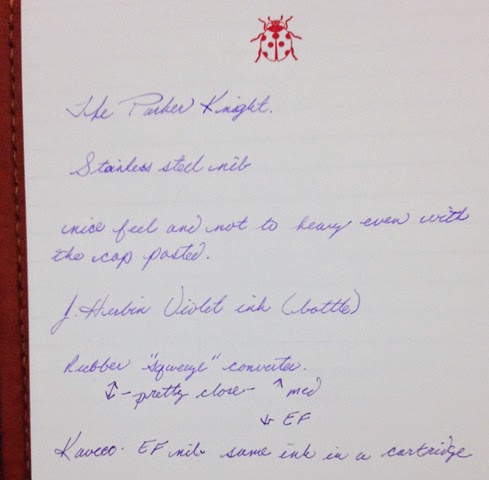 The Parker Knight.
Stainless steel nib
nice feel and not to heavy even with
the cap posted.
J. Herbin Violet ink (bottle)
Rubber "squeeze" converter.
↕ - pretty close - ↑ med
↓ EF
Kaweco. EF nib same ink in a cartridge